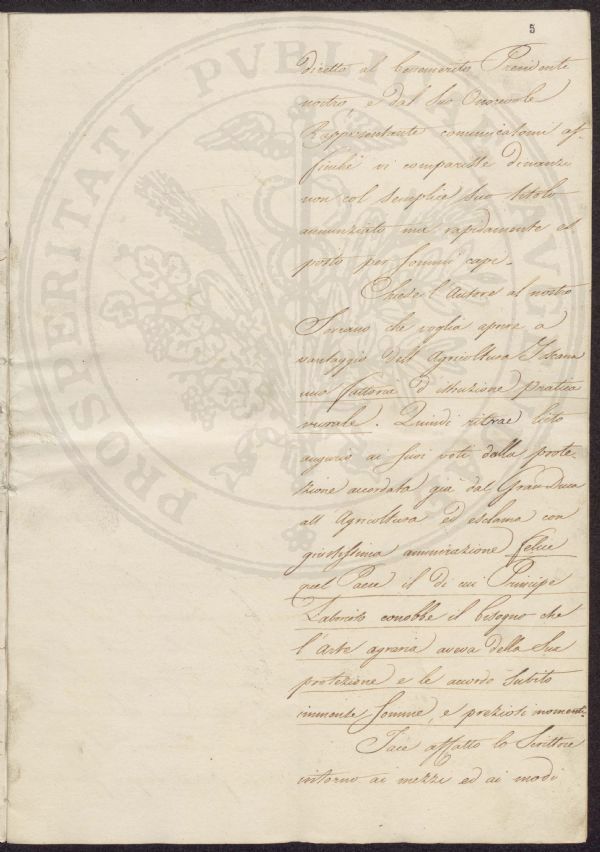 5
diretto al benemerito Presidente
nostro, e dal suo Onorevole
Rappresentante comunicatomi af-
finchè vi comparisse dinanzi
non col semplice suo titolo
annunziato ma rapidamente es
posto per sommi capi.
Chiese l'Autore al nostro
Sovrano che voglia aprire a
vantaggio dell'Agricoltura Toscana
una fattoria d'istruzione pratica
rurale. Quindi ritrae lieto
augurio ai suoi voti dalla prote-
zione accordata già dal Gran-Duca
all'Agricoltura ed esclama con
giustissima ammirazione Felice
quel Paese il di cui Principe
conobbe il bisogno che
l'Arte agraria aveva della Sua
protezione e le accordò subito
immense somme, e preziosi momenti.
Tace affatto lo Scrittore
intorno ai mezzi ed ai modi
PROSPERITATI PVBLICAE AVGENDAE